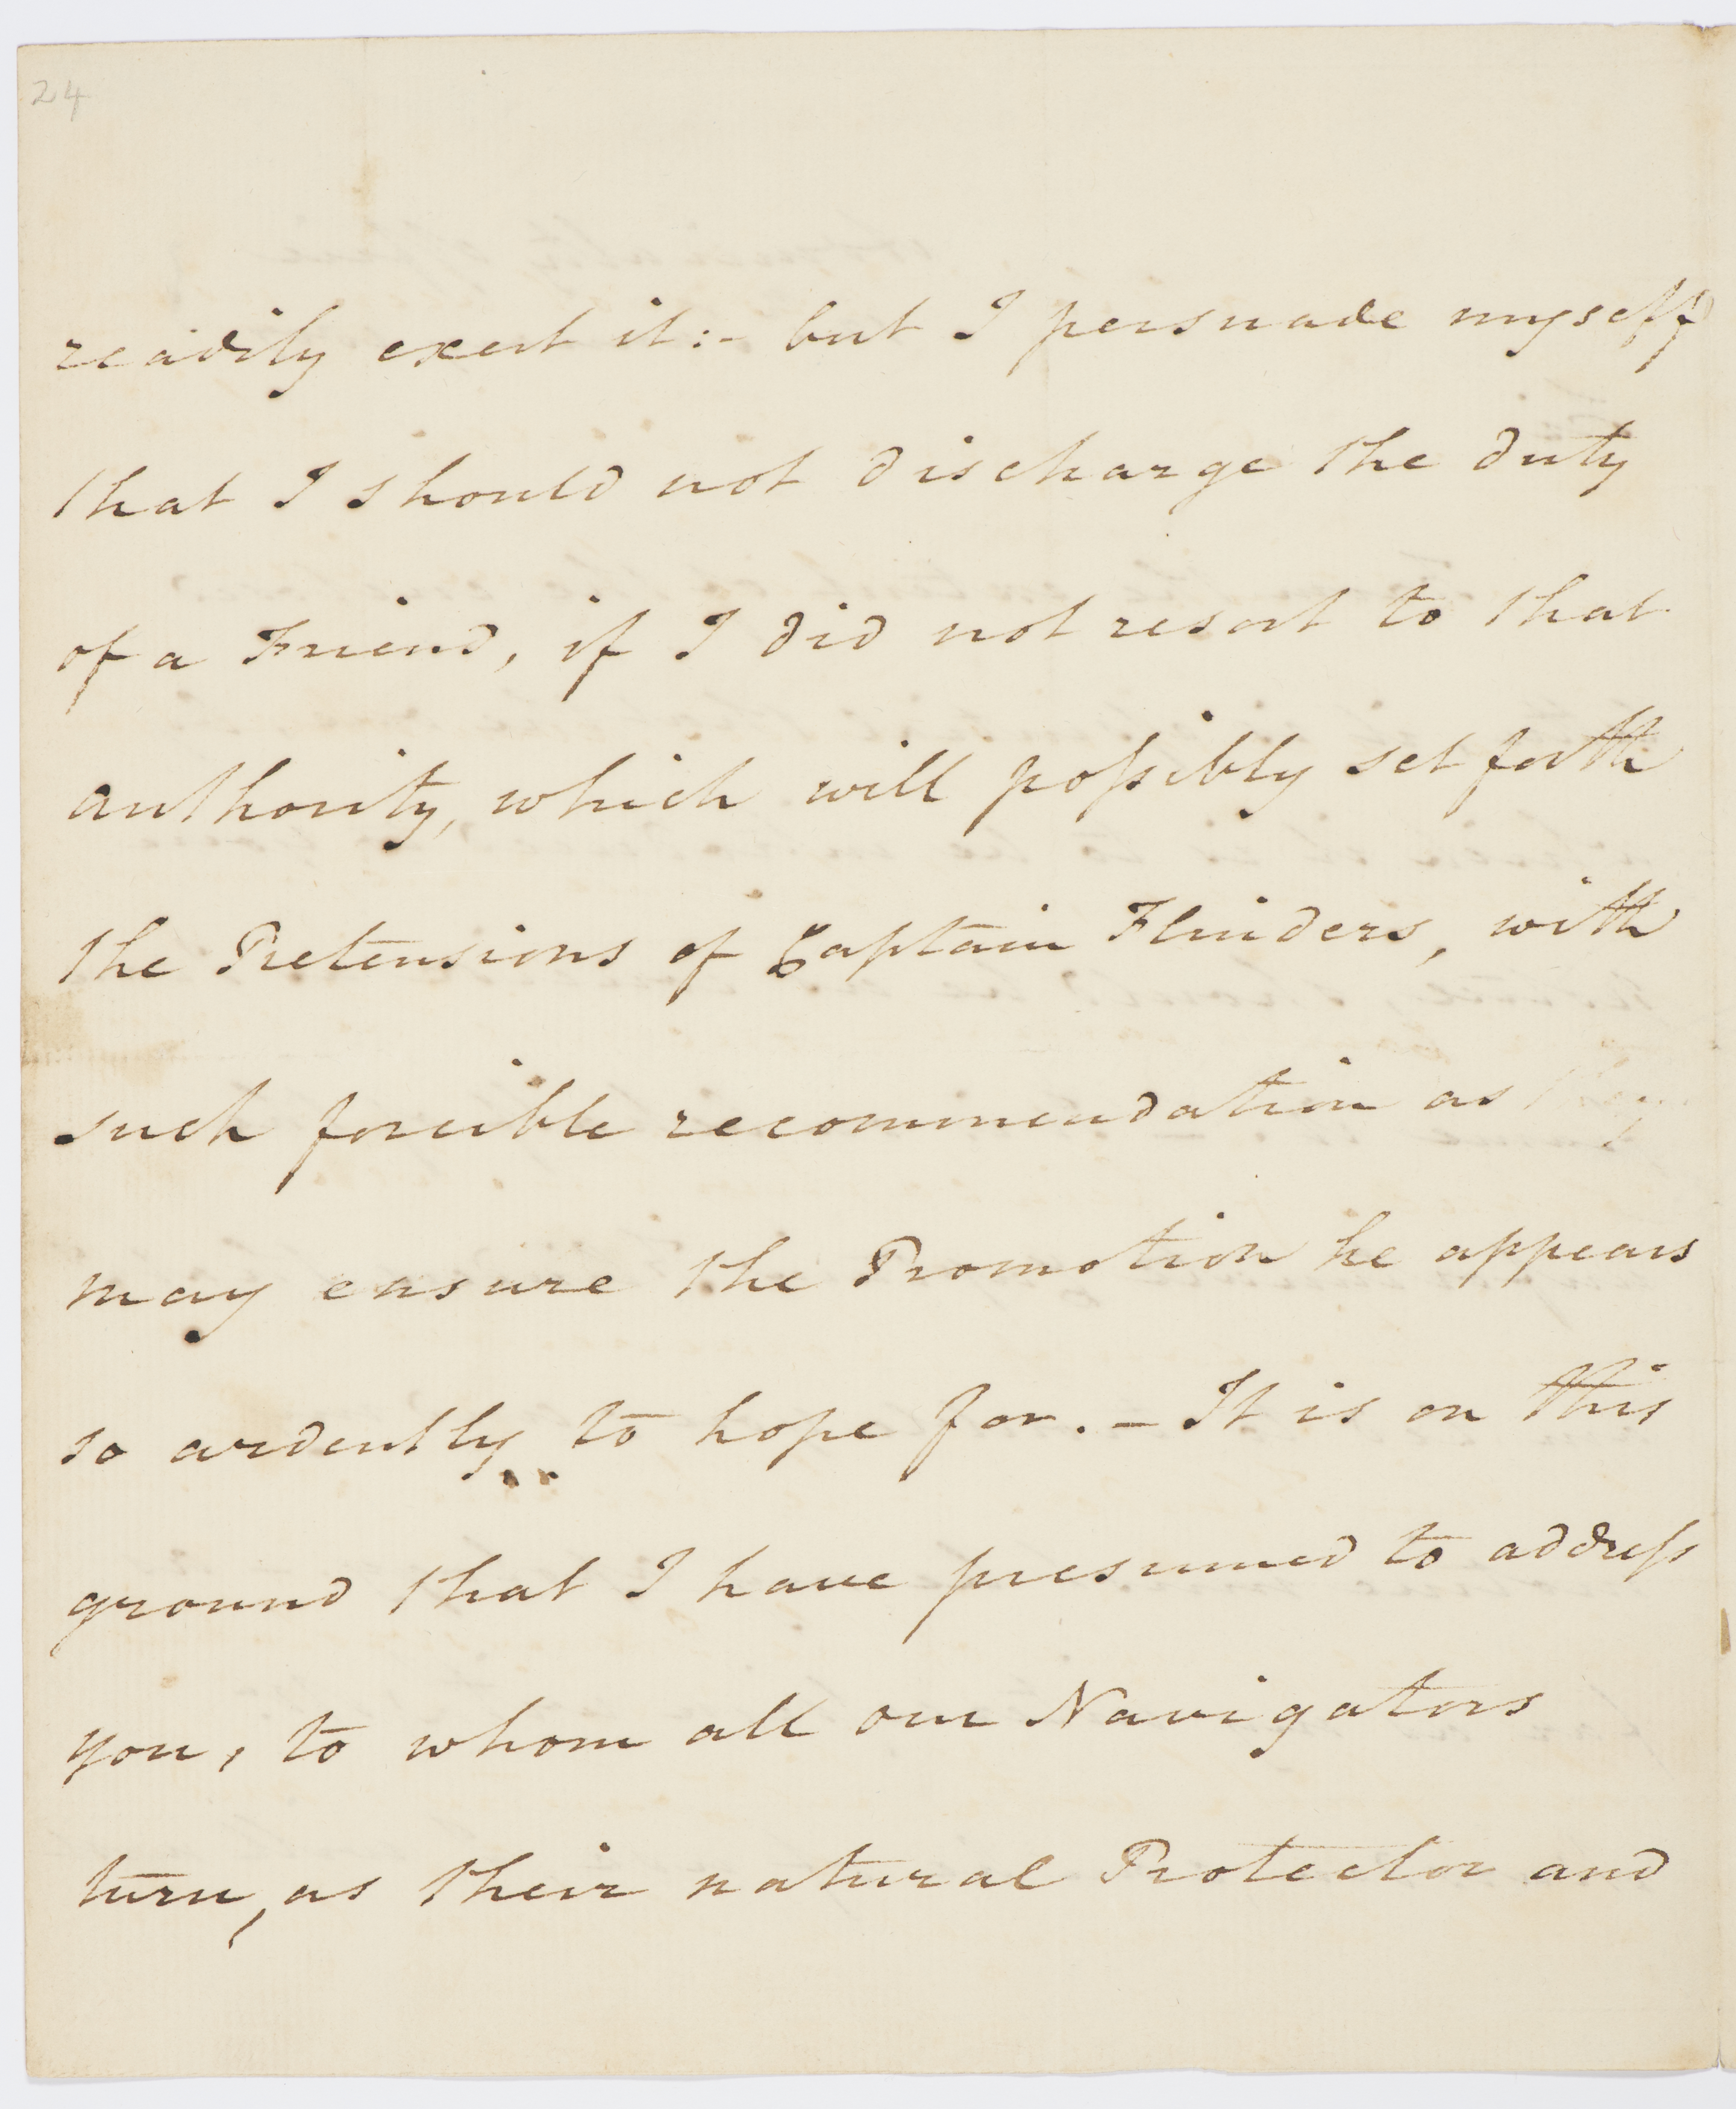 24
readily exert it:- but I persuade myself
that I should not discharge the duty
of a Friend, if I did not resort to that
authority, which will poſsibly set forth
the Pretensions of Captain Flinders, with
such forcible recommendation as they
may ensure the Promotion he appears
so ardently to hope for. - It is on this
ground that I have presumed to addreſs
you, to whom all our Navigators
turn, as their natural Protector and